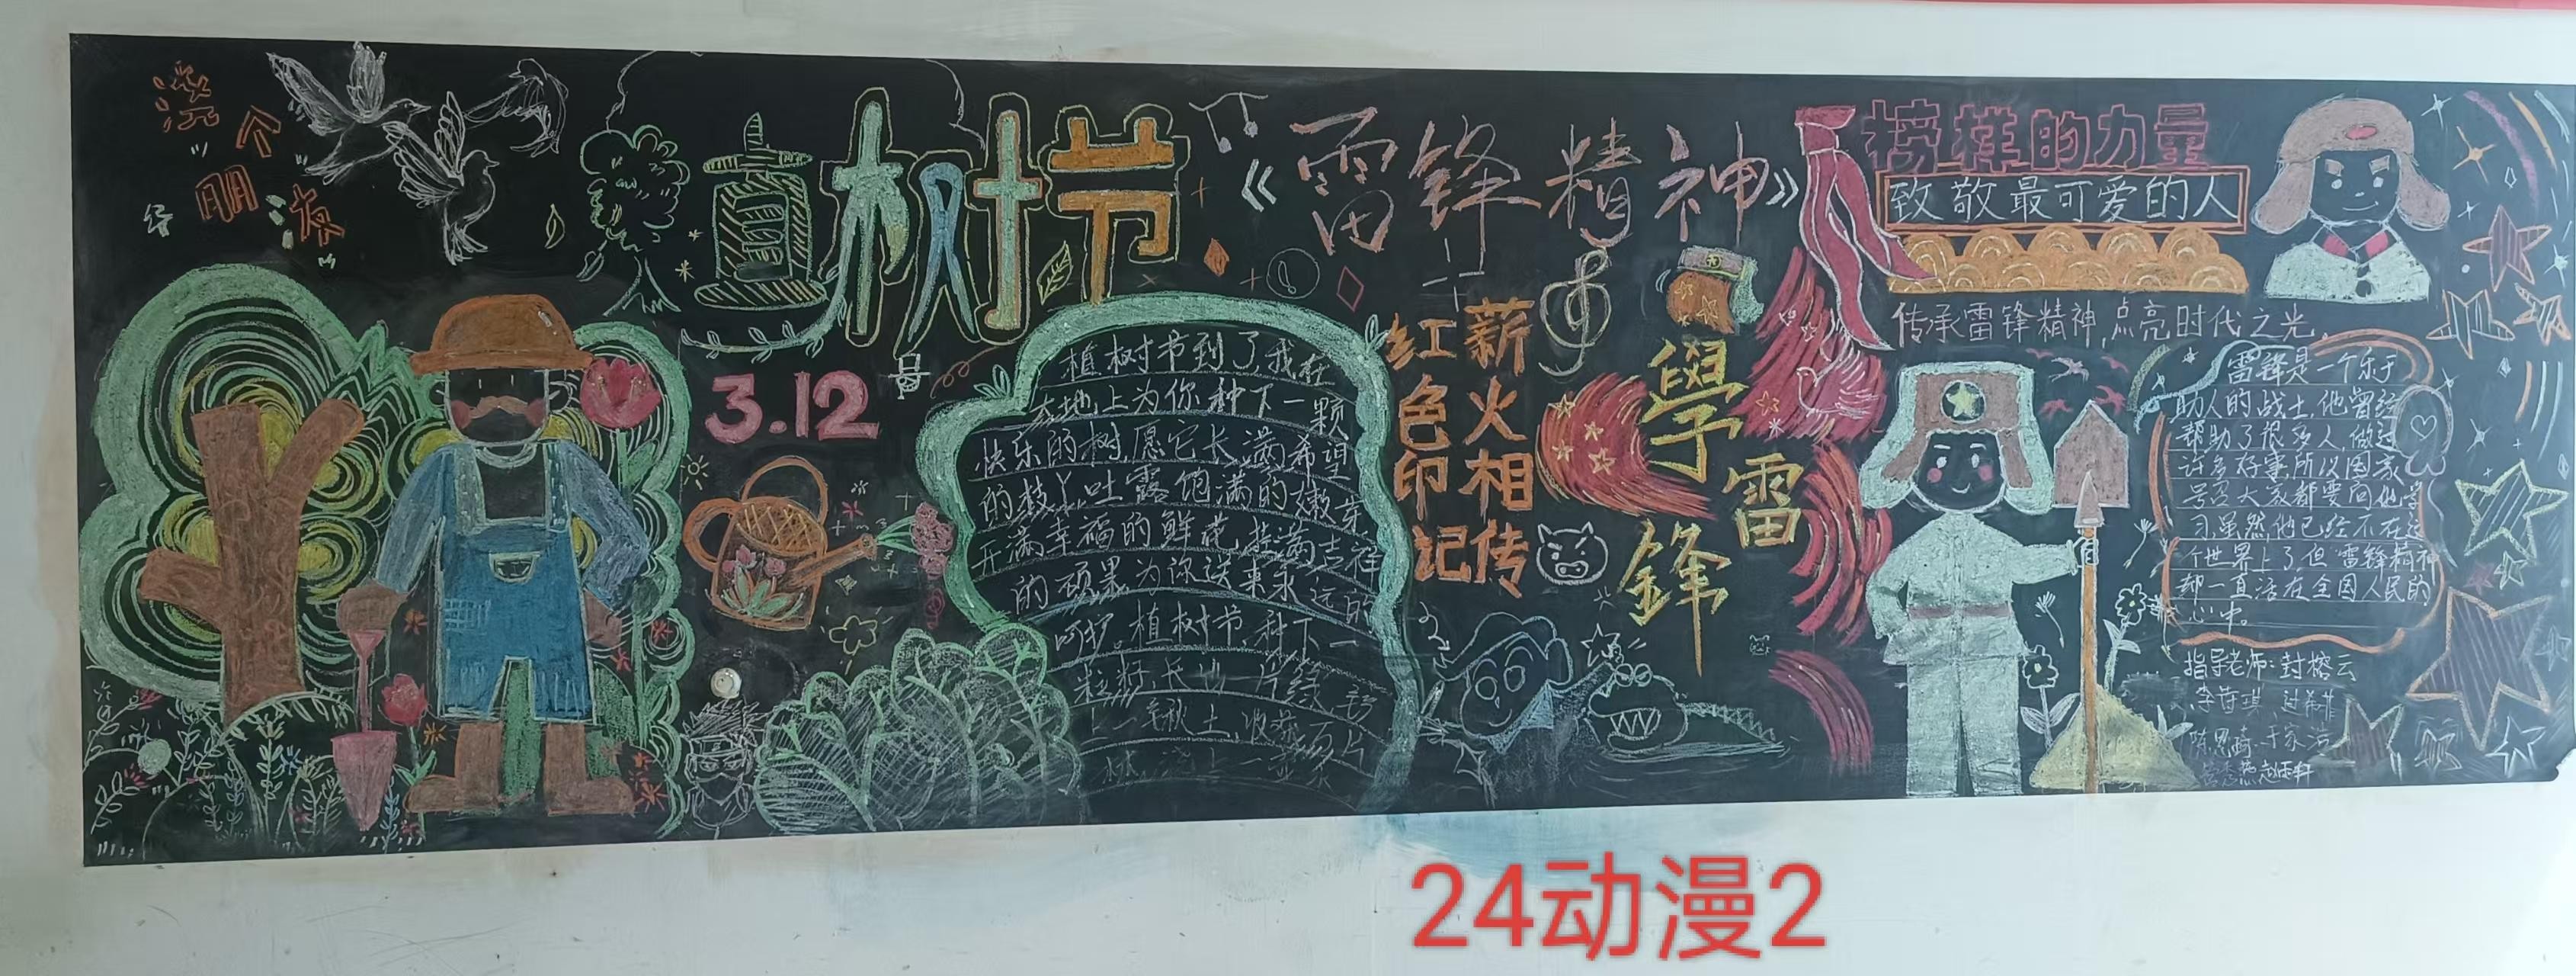 植树节
3.12
植树节到了,我在
大地上为你种下一颗
快乐的树,愿它长满希望
的枝丫,吐露饱满的嫩芽
开满幸福的鲜花,挂满吉祥
的硕果为你送来永远的
呵护。植树节,种下一
粒籽,长出一片绿
《雷锋精神》
薪火相传
红色印记
學雷鋒
榜样的力量
致敬最可爱的人
传承雷锋精神,点亮时代之光。
雷锋是一个乐于
助人的战士,他曾经
帮助了很多人,做过
许多好事,所以国家
号召大家都要向他学
习,虽然他已经不在这
个世界上了,但雷锋精神
却一直活在全国人民的
心中。
指导老师:封榕云
24动漫2